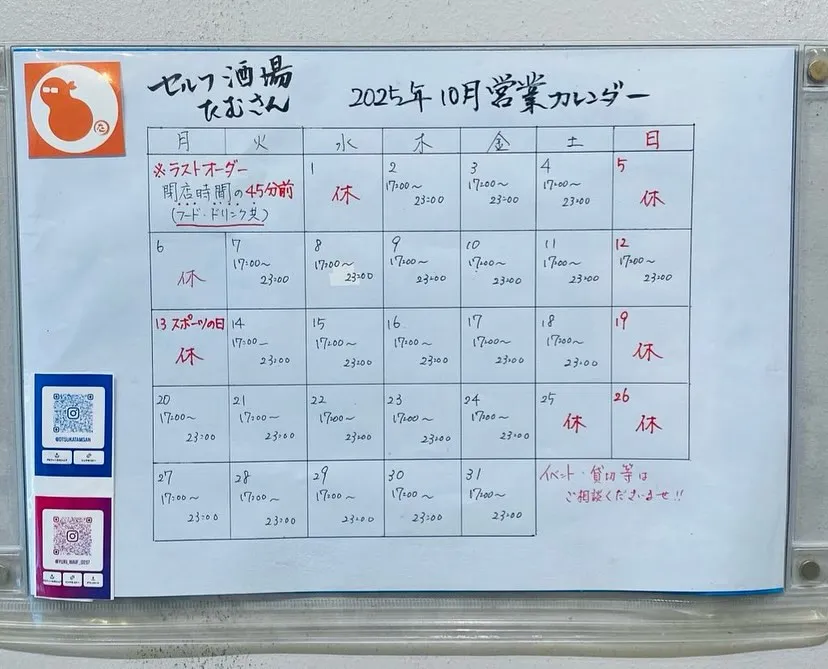 セルフ酒場
たむさん
2025年10月営業カレンダー
月 火 水 木 金 土 日
※ラストオーダー
閉店時間の45分前
(フード・ドリンク共)
1
休
2
17:00~
23:00
3
17:00~
23:00
4
17:00~
23:00
5
休
6
休
7
17:00~
23:00
8
17:00~
23:00
9
17:00~
23:00
10
17:00~
23:00
11
17:00~
23:00
12
17:00~
23:00
13 スポーツの日
休
14
17:00~
23:00
15
17:00~
23:00
16
17:00~
23:00
17
17:00~
23:00
18
17:00~
23:00
19
休
20
17:00~
23:00
21
17:00~
23:00
22
17:00~
23:00
23
17:00~
23:00
24
17:00~
23:00
25
休
26
休
27
17:00~
23:00
28
17:00~
23:00
29
17:00~
23:00
30
17:00~
23:00
31
17:00~
23:00
イベント・貸切等は
ご相談くださいませ!!
@OTSUKATAMSAN